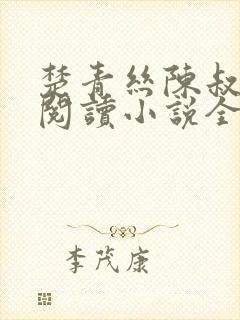 楚青絲陳叔
閱讀小說全
李茂康